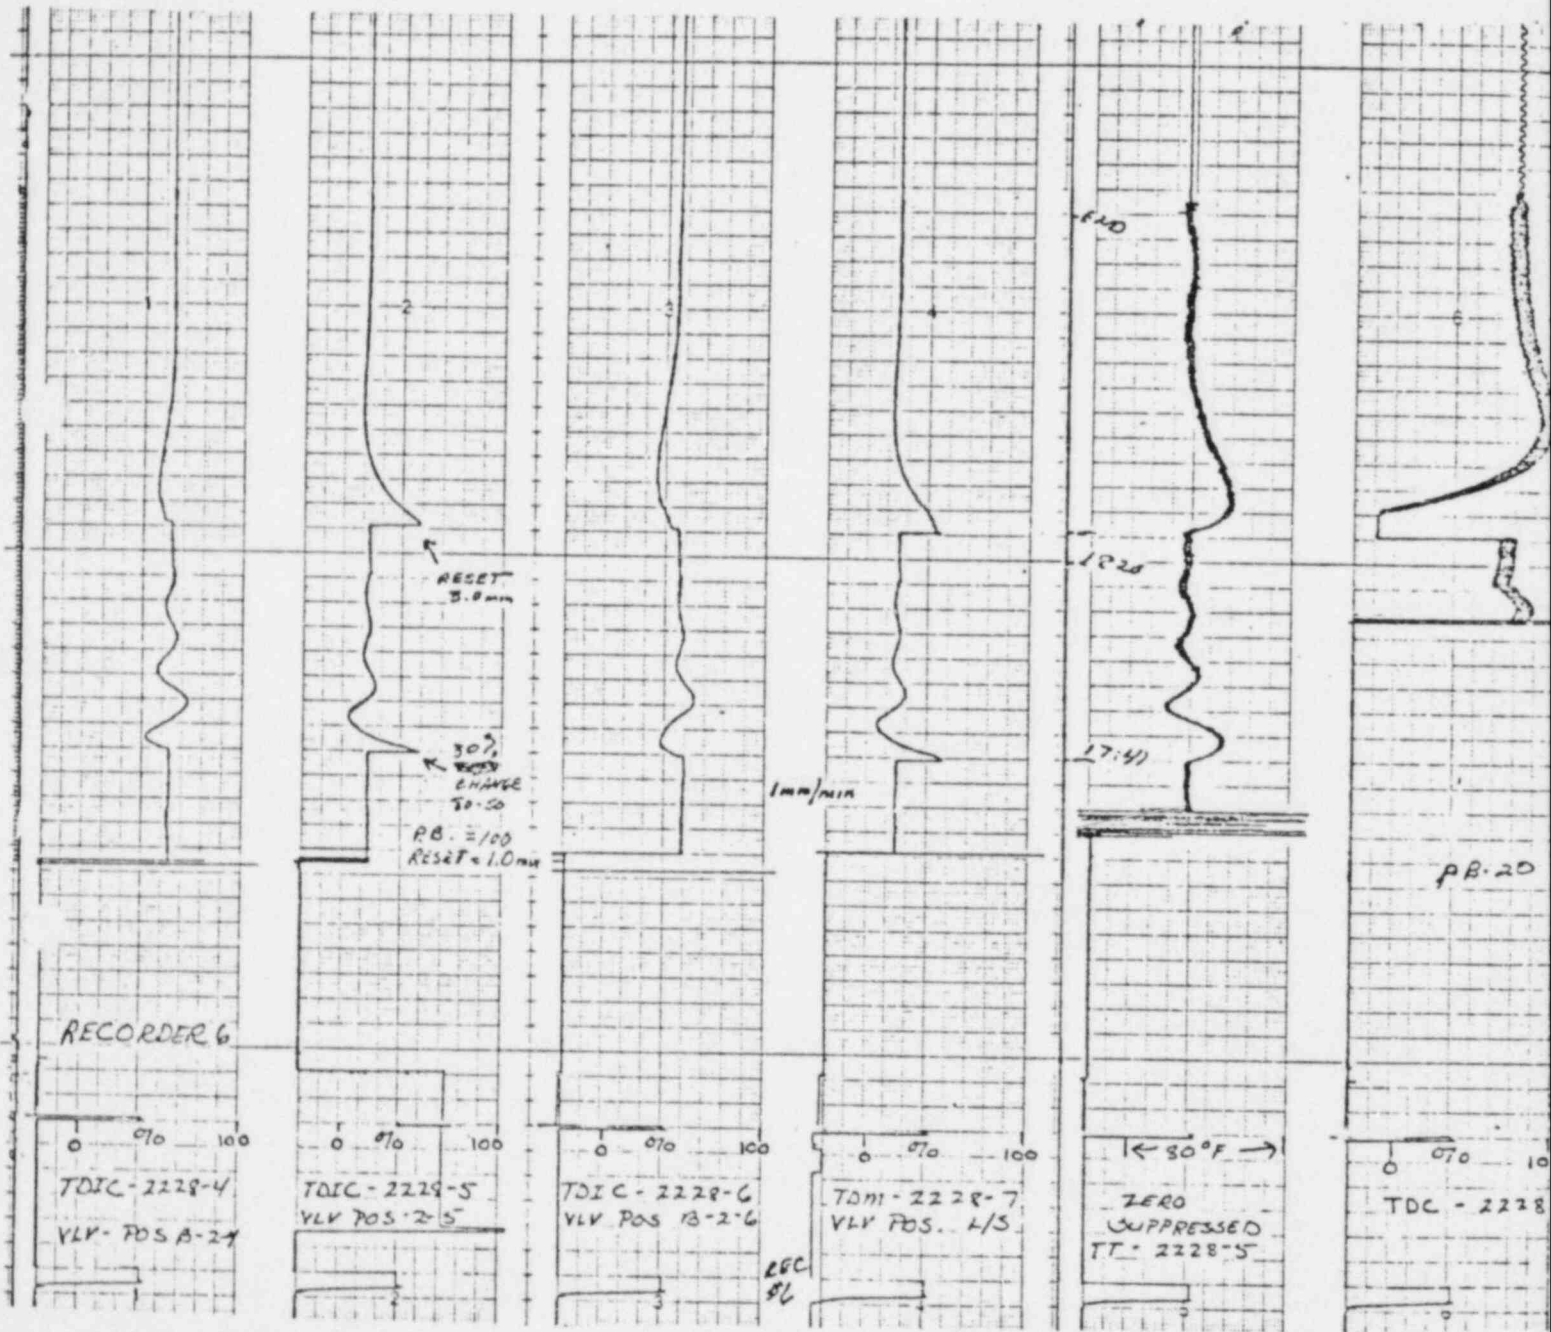 1
2
3
4
6
END
RESET
3.0 min
1820
30%
CHANGE
50
P.B. = 100
RESET = 1.0 min
1mm/min
17:40
P.B. 20
RECORDER 6
0 % 100
TDIC - 2228-4
VLV - POS B-2-4
0 % 100
TDIC - 2228-5
VLV POS 2-5
0 % 100
TDIC - 2228-6
VLV POS B-2-6
0 % 100
TDM - 2228-7
VLV POS. L/S
REC
#6
|← 80°F →|
ZERO
SUPPRESSED
TT - 2228-5
0 % 10
TDC - 2228